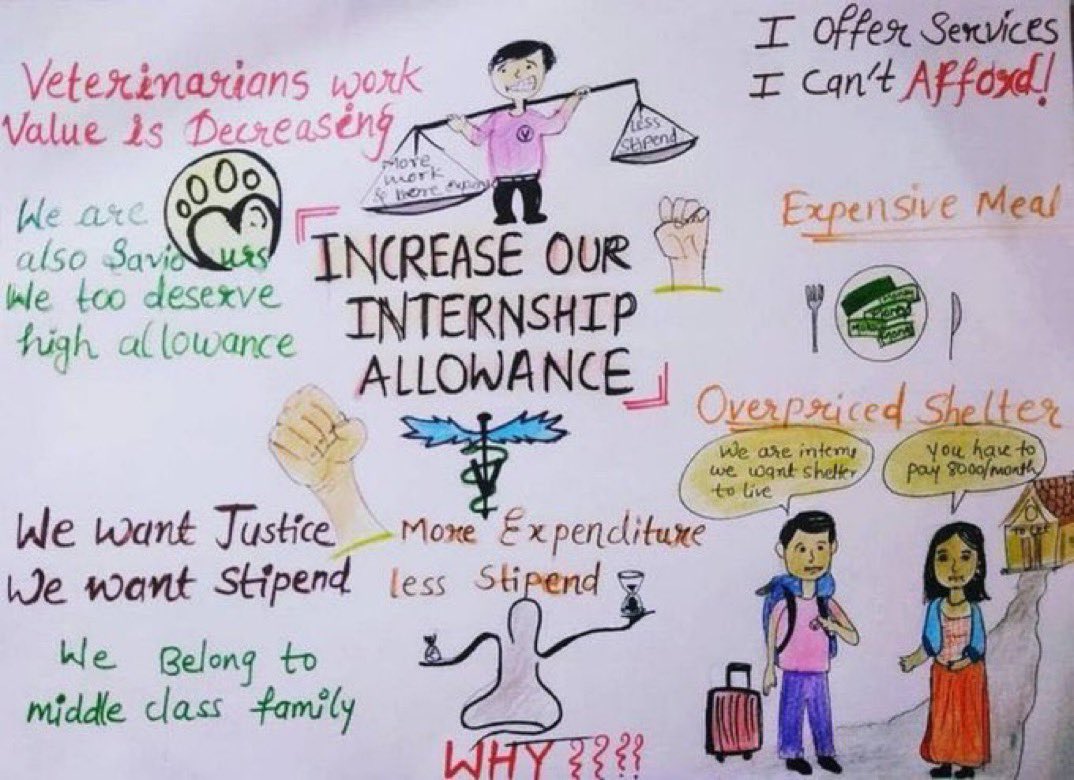 Veterinarians work
Value is Decreasing
More
work
& more
Less
Stipend
I Offer Services
I Can't Afford!
We are
also Saviours
We too deserve
high allowance
INCREASE OUR
INTERNSHIP
ALLOWANCE
Expensive Meal
money
money
money
Overpriced Shelter
We are interns
we want shelter
to live
You have to
pay 8000/month
TO LET
We Want Justice
We want Stipend
More Expenditure
less Stipend
We Belong to
middle class family
WHY ????